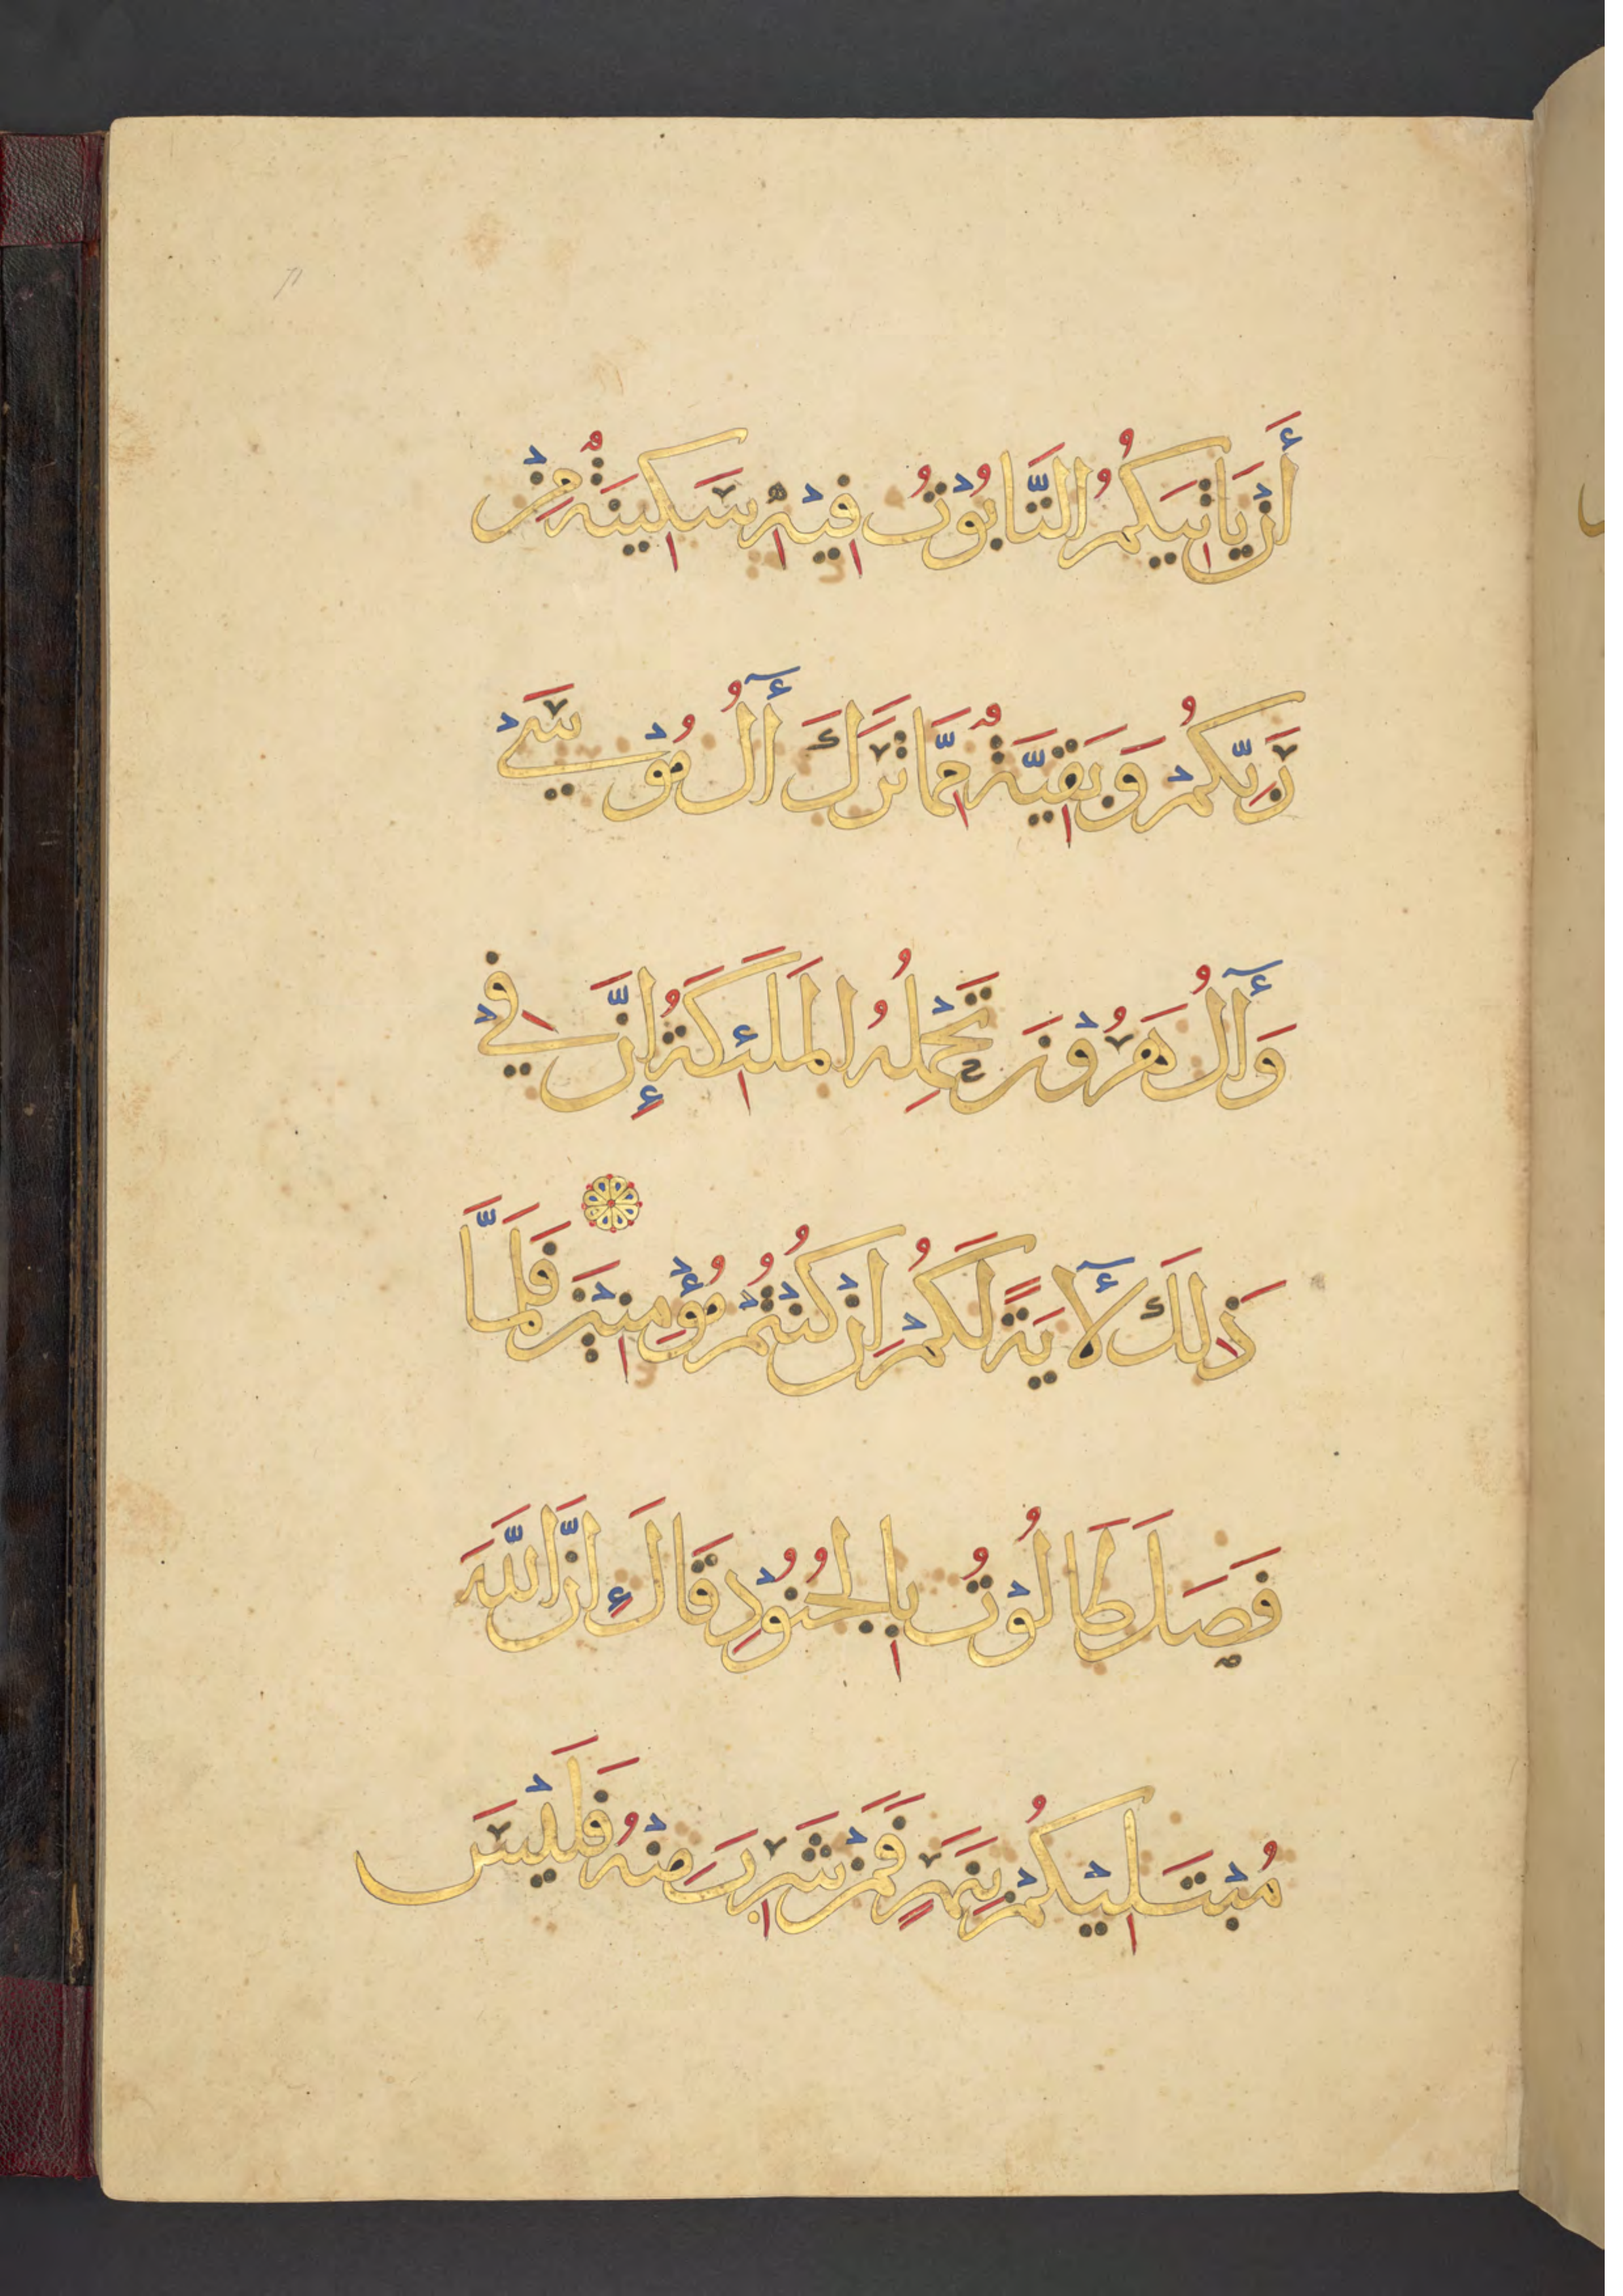 أَنْ يَاتِيَكُمُ التَّابُوْتُ فِيْهِ سَكِينَةٌ مِنْ
رَبِّكُمْ وَبَقِيَّةٌ مِمَّا تَرَكَ أٓلُ مُوْسَيْ
وَأٓلُ هَرُوْنَ تَحْمِلُهُ المَلَئِكَةُ إِنَّ فِيْ
ذَلِكَ لَأٓيَةً لَكُمْ اِنْ كُنْتُمْ مُؤْمِنِيْنَ فَلَمَّا
فَصَلَ طَالُوْتُ بِالجُنُوْدِ قَالَ إِنَّ اللَّهَ
مُبْتَلِيْكُمْ بِنَهَرٍ فَمَنْ شَرِبَ مِنْهُ فَلَيْسَ